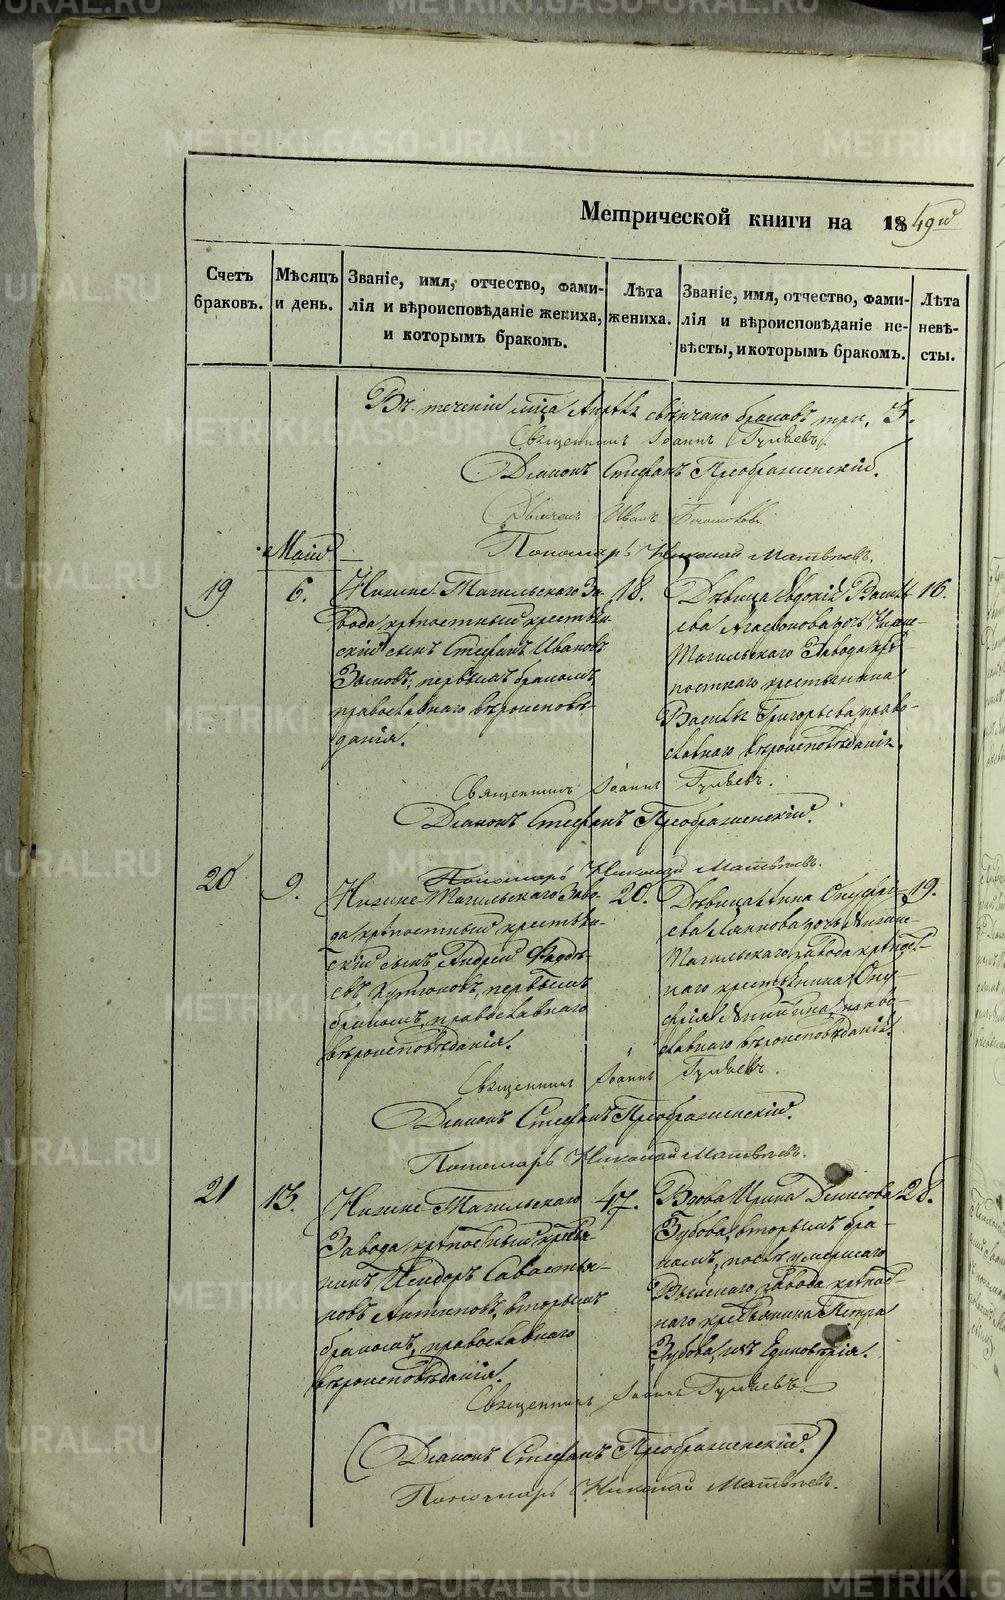 Метрической книги на 1849й
Счетъ браковъ.
Мѣсяцъ и день.
Званіе, имя, отчество, фами-
лія и вѣроисповѣданіе жениха,
и которымъ бракомъ.
Лѣта жениха.
Званіе, имя, отчество, фами-
лія и вѣроисповѣданіе не-
вѣсты, и которымъ бракомъ.
Лѣта невѣ-
сты.
Въ теченіи мца Апрѣля свѣнчано браковъ три, 3.
Священникъ Іоаннъ Гуляевъ.
Діаконъ Стефанъ Преображенскій.
Дьячекъ Иванъ
Пономарь Николай Матвѣевъ.
Май
19
6.
Нижне-Тагильскаго За-
вода крѣпостный крестьян-
скій сынъ Стефанъ Ивановъ
Зыковъ, первымъ бракомъ,
православнаго вѣроисповѣ-
данія.
18.
Дѣвица Евдокія Василь-
ева Агафонова, дочь Нижне-
Тагильскаго Завода крѣ-
постнаго крестьянина
Василья Григорьева, право-
славнаго вѣроисповѣданія.
16.
Священникъ Іоаннъ Гуляевъ.
Діаконъ Стефанъ Преображенскій.
Пономарь Николай Матвѣевъ.
20
9.
Нижне-Тагильскаго Заво-
да крѣпостный крестьян-
скій сынъ Андрей Фадѣ-
евъ первымъ
бракомъ, православнаго
вѣроисповѣданія.
20.
Дѣвица Анна Онуфрі-
ева дочь Нижне-
Тагильскаго завода крѣпост-
наго крестьянина Ону-
фрія Никитина, право-
славнаго вѣроисповѣданія.
19.
Священникъ Іоаннъ Гуляевъ.
Діаконъ Стефанъ Преображенскій.
Пономарь Николай Матвѣевъ.
21
13.
Нижне-Тагильскаго
Завода крѣпостный крестья-
нинъ Исидоръ Савостья-
новъ Антиповъ, вторымъ
бракомъ, православнаго
вѣроисповѣданія.
47.
Вдова Ирина Денисова
Зубова, вторымъ бра-
комъ, послѣ умершаго
Выйскаго завода крѣпост-
наго крестьянина Петра
Зубова, изъ Единовѣрія.
28.
Священникъ Іоаннъ Гуляевъ
Діаконъ Стефанъ Преображенскій.
Пономарь Николай Матвѣевъ.
METRIKI.GASO-URAL.RU